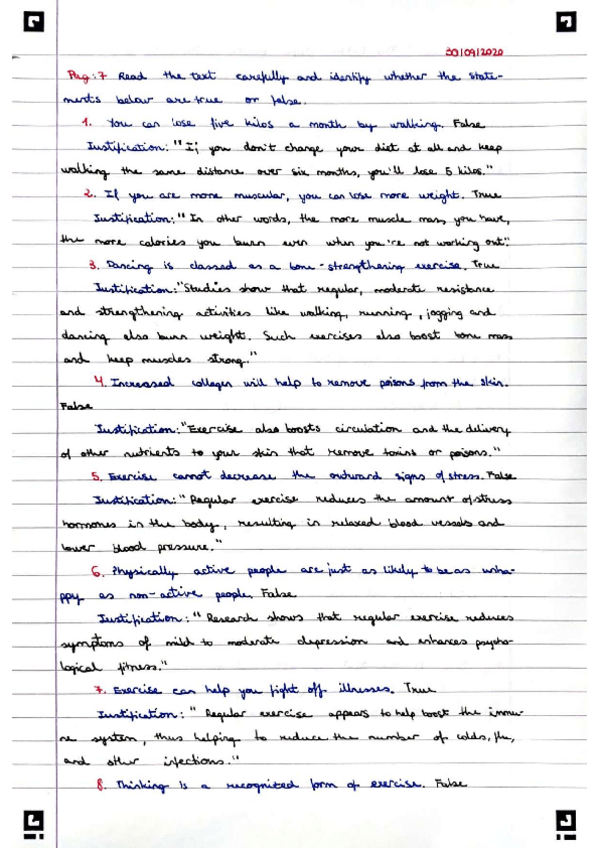 30/09/2020
Pag: 7 Read the text carefully and identify whether the state-
ments below are true or false.
1. You can lose five kilos a month by walking. False
Justification: "If you don't change your diet at all and keep
walking the same distance over six months, you'll lose 5 kilos."
2. If you are more muscular, you can lose more weight. True
Justification: "In other words, the more muscle mass you have,
the more calories you burn even when you're not working out".
3. Dancing is classed as a bone-strengthening exercise. True
Justification: "Studies show that regular, moderate resistance
and strengthening activities like walking, running, jogging and
dancing also burn weight. Such exercises also boost bone mass
and keep muscles strong."
4. Increased collagen will help to remove poisons from the skin.
False
Justification: "Exercise also boosts circulation and the delivery
of other nutrients to your skin that remove toxins or poisons."
5. Exercise cannot decrease the outward signs of stress. False
Justification: "Regular exercise reduces the amount of stress
hormones in the body, resulting in relaxed blood vessels and
lower blood pressure."
6. Physically active people are just as likely to be as unha-
ppy as non-active people. False
Justification: "Research shows that regular exercise reduces
symptoms of mild to moderate depression and enhances psycho-
logical fitness."
7. Exercise can help you fight off illnesses. True
Justification: "Regular exercise appears to help boost the immu-
ne system, thus helping to reduce the number of colds, flu,
and other infections."
8. Thinking is a recognized form of exercise. False